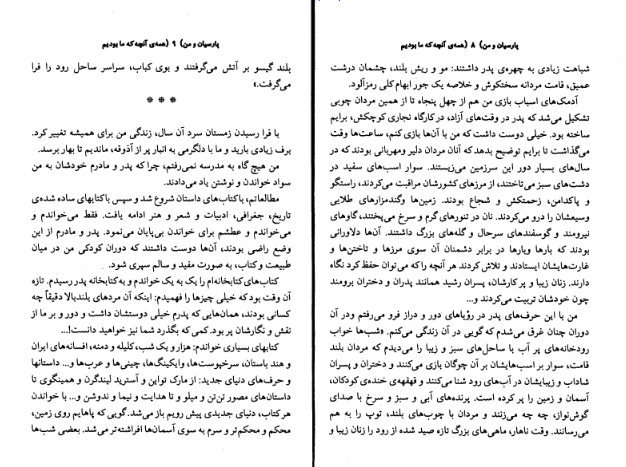 پارسیان و من) ۸ (همه‌ی آنچه که ما بودیم
شباهت زیادی به چهره‌ی پدر داشتند: مو و ریش بلند، چشمان درشت
عمیق، قامت مردانه سختکوش و خلاصه یک جور ابهام کلی رمزآلود.
آدمک‌های اسباب بازی من هم از چهل پنجاه تا از همین مردان چوبی
تشکیل می‌شد که پدر در وقت‌های آزاد، در کارگاه نجاری کوچکش، برایم
ساخته بود. خیلی دوست داشت که من با آن‌ها بازی کنم، ساعت‌ها وقت
می‌گذاشت تا برایم توضیح بدهد که آنان مردان دلیر ومهربانی بودند که در
سال‌های بسیار دور این سرزمین می‌زیستند. سوار اسب‌های سفید در
دشت‌های سبز می‌تاختند، از مرزهای کشورشان مراقبت می‌کردند، راستگو
و پاکدامن، زحمتکش و شجاع بودند. زمین‌ها وگندمزارهای طلایی
وسیعشان را درو می‌کردند. نان در تنورهای گرم و سرخ می‌پختند، گاوهای
نیرومند و گوسفندهای سرحال و گله‌های بزرگ داشتند. آن‌ها دلاورانی
بودند که بارها وبارها در برابر دشمنان آن سوی مرزها و تاختن‌ها و
غارت‌هایشان ایستادند و تلاش کردند هر آنچه را که می‌توان حفظ کرد نگاه
دارند. زنان زیبا و پر کارشان، پسران رشید همانند پدران و دختران برومند
چون خودشان تربیت می‌کردند و...
من با این حرف‌های پدر در رؤیاهای دور و دراز فرو می‌رفتم ودر آن
دوران چنان غرق می‌شدم که گویی در آن زندگی می‌کنم. «شب‌ها خواب
رودخانه‌های پر آب با ساحل‌های سبز و زیبا را می‌دیدم که مردان بلند
قامت، سوار بر اسب‌هایشان بر آن چوگان بازی می‌کنند و دختران و پسران
شاداب و زیبایشان در آب‌های رود شنا می‌کنند و قهقهه‌ی خنده‌ی کودکان،
آسمان و زمین را پر کرده است. پرنده‌های آبی و سبز و سرخ با صدای
گوش‌نواز، چه چه می‌زنند و مردان با چوب‌های بلند، توپ را به هم
می‌رسانند. وقت ناهار، ماهی‌های بزرگ تازه صید شده از رود را زنان زیبا و
پارسیان و من) ۹ (همه‌ی آنچه که ما بودیم
بلند گیسو بر آتش می‌گرفتند و بوی کباب، سراسر ساحل رود را فرا
می‌گرفت.»
* * *
با فرا رسیدن زمستان سرد آن سال، زندگی من برای همیشه تغییر کرد.
برف زیادی بارید و ما با دلگرمی به انبار پر از آذوقه، ماندیم تا بهار برسد.
من هیچ گاه به مدرسه نمی‌رفتم، چرا که پدر و مادرم خودشان به من
سواد خواندن و نوشتن یاد می‌دادند.
مطالعاتم، با کتاب‌های داستان شروع شد و سپس با کتابهای ساده شده‌ی
تاریخ، جغرافی، ادبیات و شعر و هنر ادامه یافت. فقط می‌خواندم و
می‌خواندم و عطشم برای خواندن بی‌پایان می‌نمود. پدر و مادرم از این
وضع راضی بودند، آن‌ها دوست داشتند که دوران کودکی من در میان
طبیعت و کتاب، به صورت مفید و سالم سپری شود.
کتاب‌های کتابخانه‌ام را یک به یک خواندم و به کتابخانه پدر رسیدم. تازه
آن وقت بود که خیلی چیزها را فهمیدم: اینکه آن مردهای بلندبالا دقیقاً چه
کسانی بودند، همان‌هایی که پدرم خیلی دوستشان داشت و دور و بر ما از
نقش و نگارشان پر بود. کمی که بگذرد شما نیز خواهید دانست!...
کتابهای بسیاری خواندم: هزار و یک شب، کلیله و دمنه، افسانه‌های ایران
و هند باستان، سرخپوست‌ها، وایکینگ‌ها، چینی‌ها و عرب‌ها و... داستانها
و حرف‌های دنیای جدید: از مارک تواین و آسترید لیندگرن و همینگوی تا
داستان‌های مصور تن‌تن و میلو و تا هدایت و نیما و ندوشن و... با خواندن
هر کتاب، دنیای جدیدی پیش رویم باز می‌شد. گویی که پاهایم روی زمین،
محکم و محکم‌تر و سرم به سوی آسمان‌ها افراشته‌تر می‌شد. بعضی شب‌ها